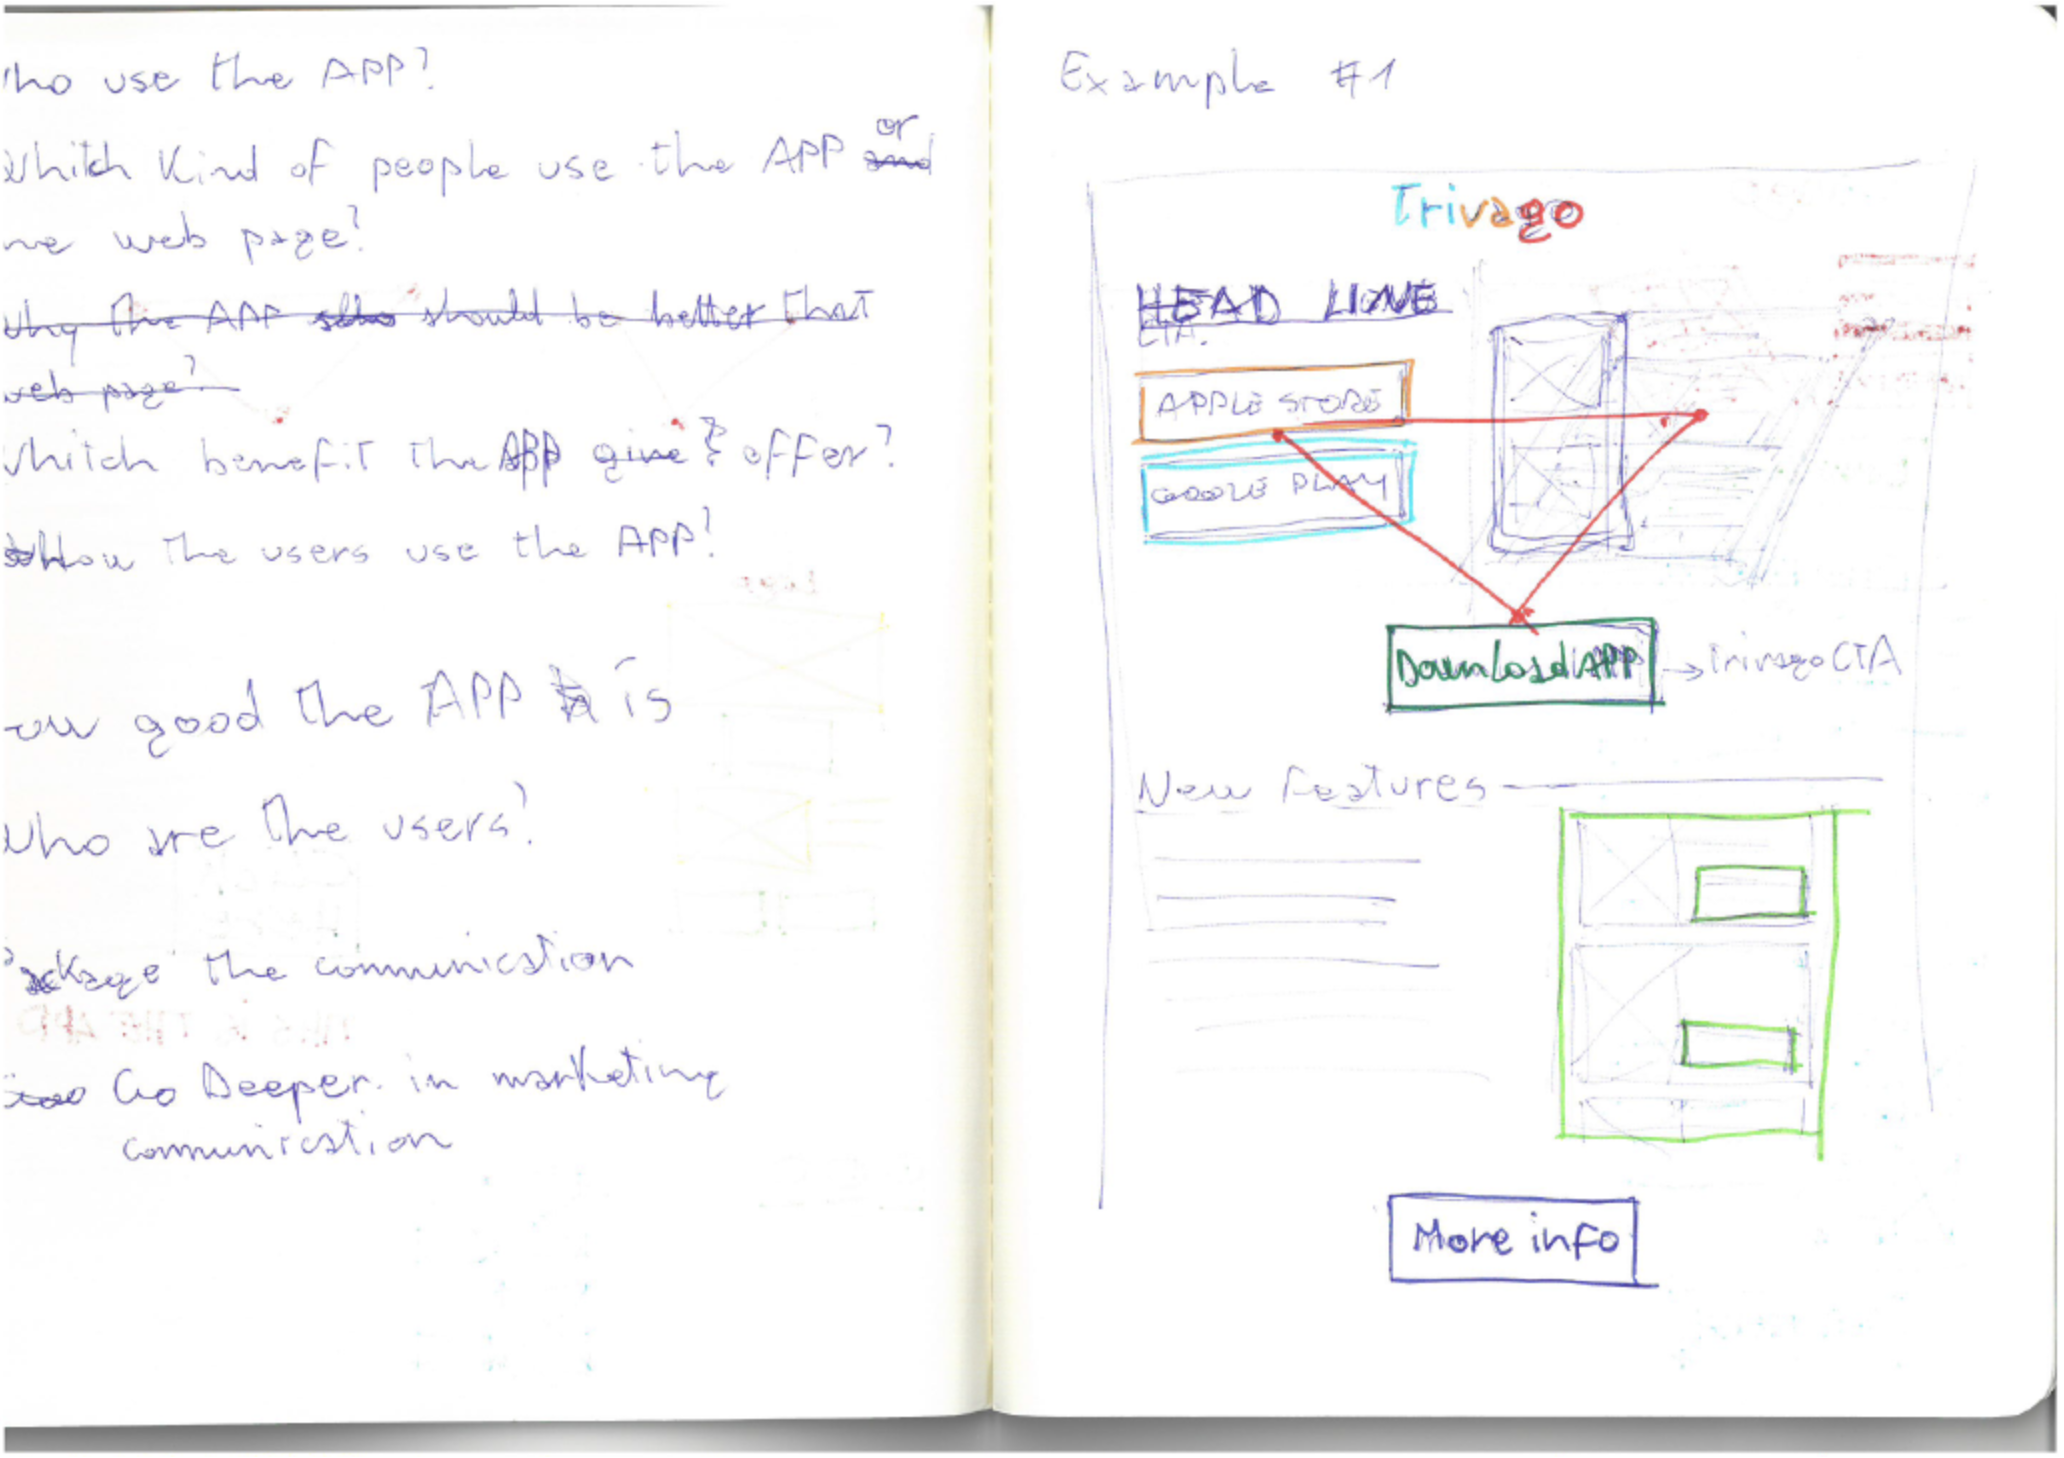 ho use the APP?
Whitch Kind of people use the APP or and
ne web page?
Why the APP should be better that
web page?
Whitch benefit the APP give offer?
How the users use the APP?
ow good the APP is
Who are the users?
Package the communication
Go Deeper in marketing
communication
Example #1
trivago
HEAD LINE
CTA.
APPLE STORE
GOOGLE PLAY
Download APP → trivago CTA
New Features
More info